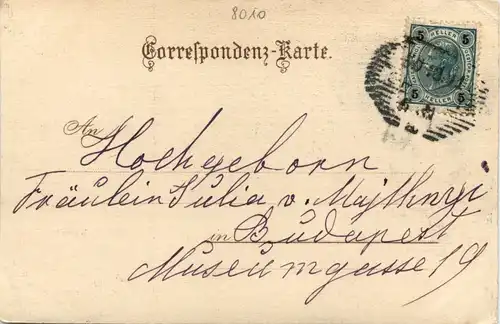 8010
Correspondenz-Karte.
5 HELLER 5
5 5
An Hochgeborn
Fräulein Julia v. Majthnyi
in Budapest
Museumgasse 19